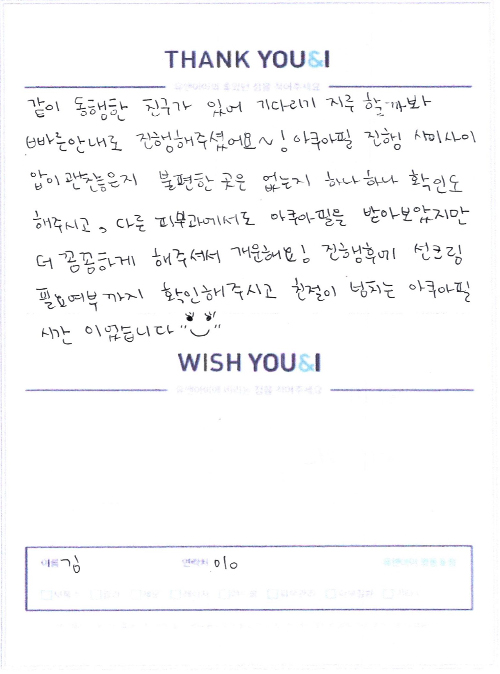 THANK YOU&I
유앤아이의 좋았던 점을 적어주세요
같이 동행한 친구가 있어 기다리기 지루 할까봐
빠른안내로 진행해주셨어요~! 아쿠아필 진행 사이사이
압이 괜찮은지 불편한 곳은 없는지 하나하나 확인도
해주시고, 다른 피부과에서도 아쿠아필을 받아보았지만
더 꼼꼼하게 해주셔서 개운해요! 진행후에 선크림
필요여부까지 확인해주시고 친절이 넘치는 아쿠아필
시간 이었습니다
WISH YOU&I
이름 김 연락처 010